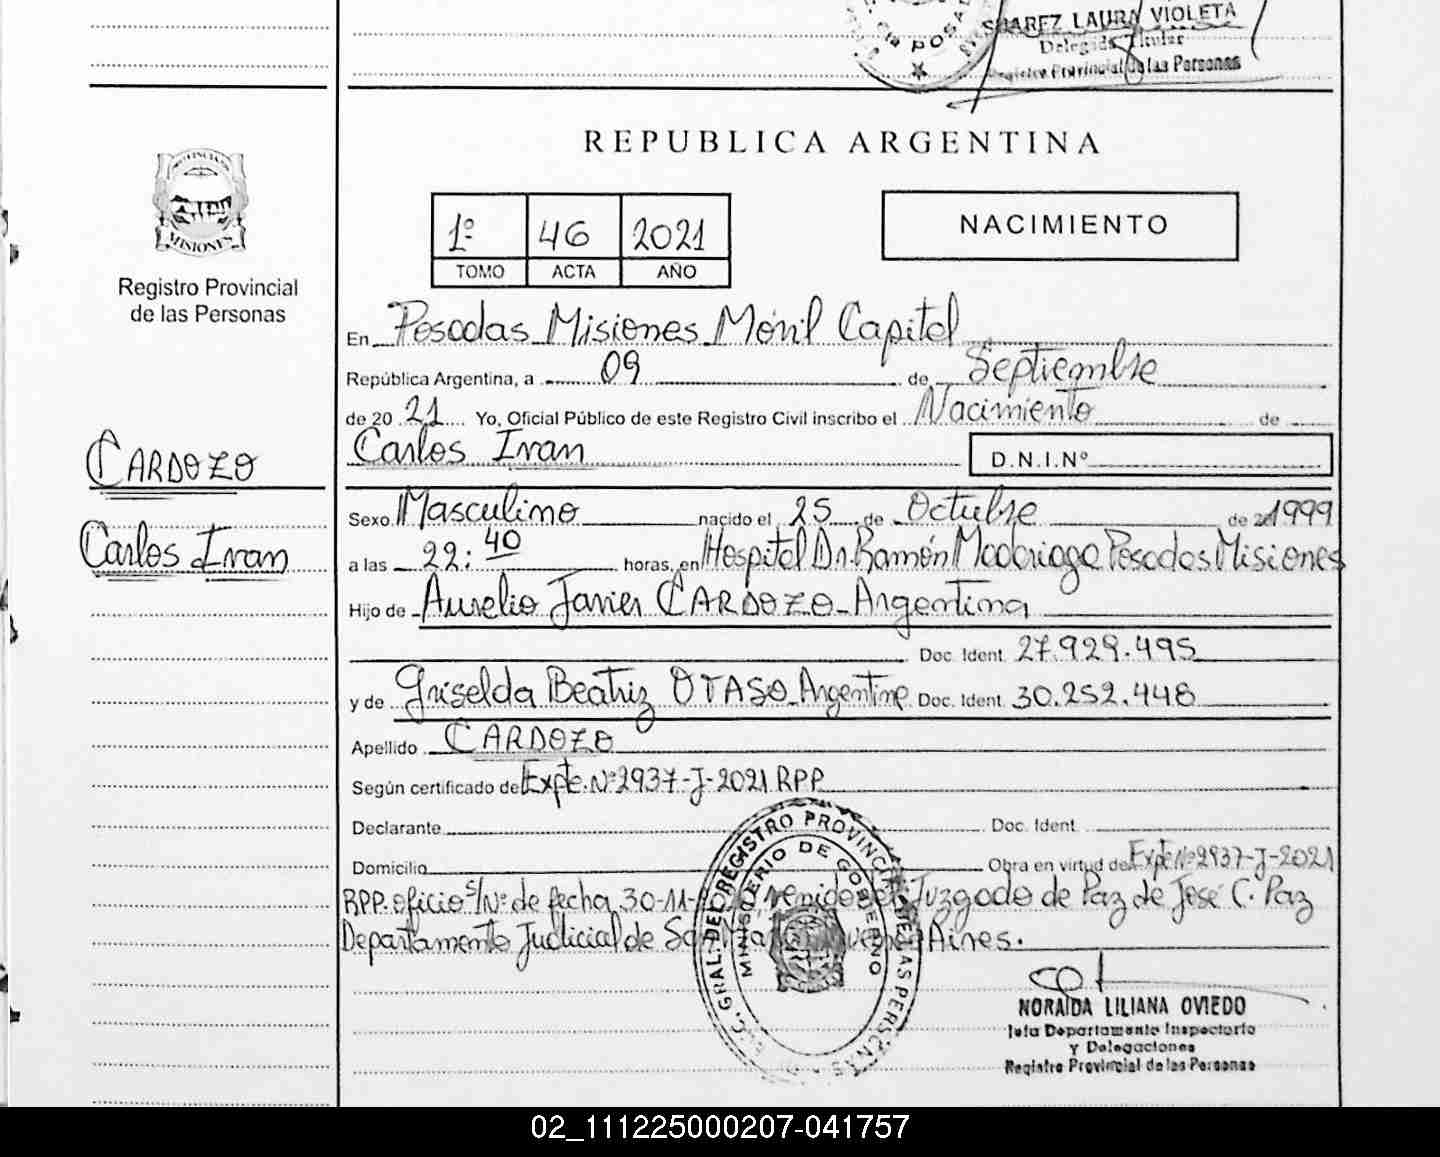 SUAREZ LAURA VIOLETA
Delegada Titular
Registro Provincial de las Personas
POSADAS
REPUBLICA ARGENTINA
PROVINCIA
MISIONES
Registro Provincial
de las Personas
1º 46 2021
TOMO ACTA AÑO
NACIMIENTO
En Posadas Misiones Móvil Capital
República Argentina, a 09 de Septiembre
de 20 21 Yo, Oficial Público de este Registro Civil inscribo el Nacimiento de
Carlos Ivan D.N.I.Nº
CARDOZO
Carlos Ivan
Sexo Masculino nacido el 25 de Octubre de 1999
a las 22:40 horas, en Hospital Dr. Ramón Madariaga Posadas Misiones
Hijo de Aurelio Javier CARDOZO - Argentina
Doc. Ident. 27.929.495
y de Griselda Beatriz OTASO - Argentina Doc. Ident. 30.252.448
Apellido CARDOZO
Según certificado de Expte. Nº 2937-J-2021 RPP
Declarante Doc. Ident.
Domicilio Obra en virtud de Expte Nº 2937-J-2021
RPP. oficio S/Nº de fecha 30-11- venido del Juzgado de Paz de José C. Paz
Departamento Judicial de San Aires.
GRAL. DEL REGISTRO PROVINCIAL DE LAS PERSONAS
MINISTERIO DE GOBIERNO
NORAIDA LILIANA OVIEDO
Jefa Departamento Inspectoria
y Delegaciones
Registro Provincial de las Personas
02_111225000207-041757